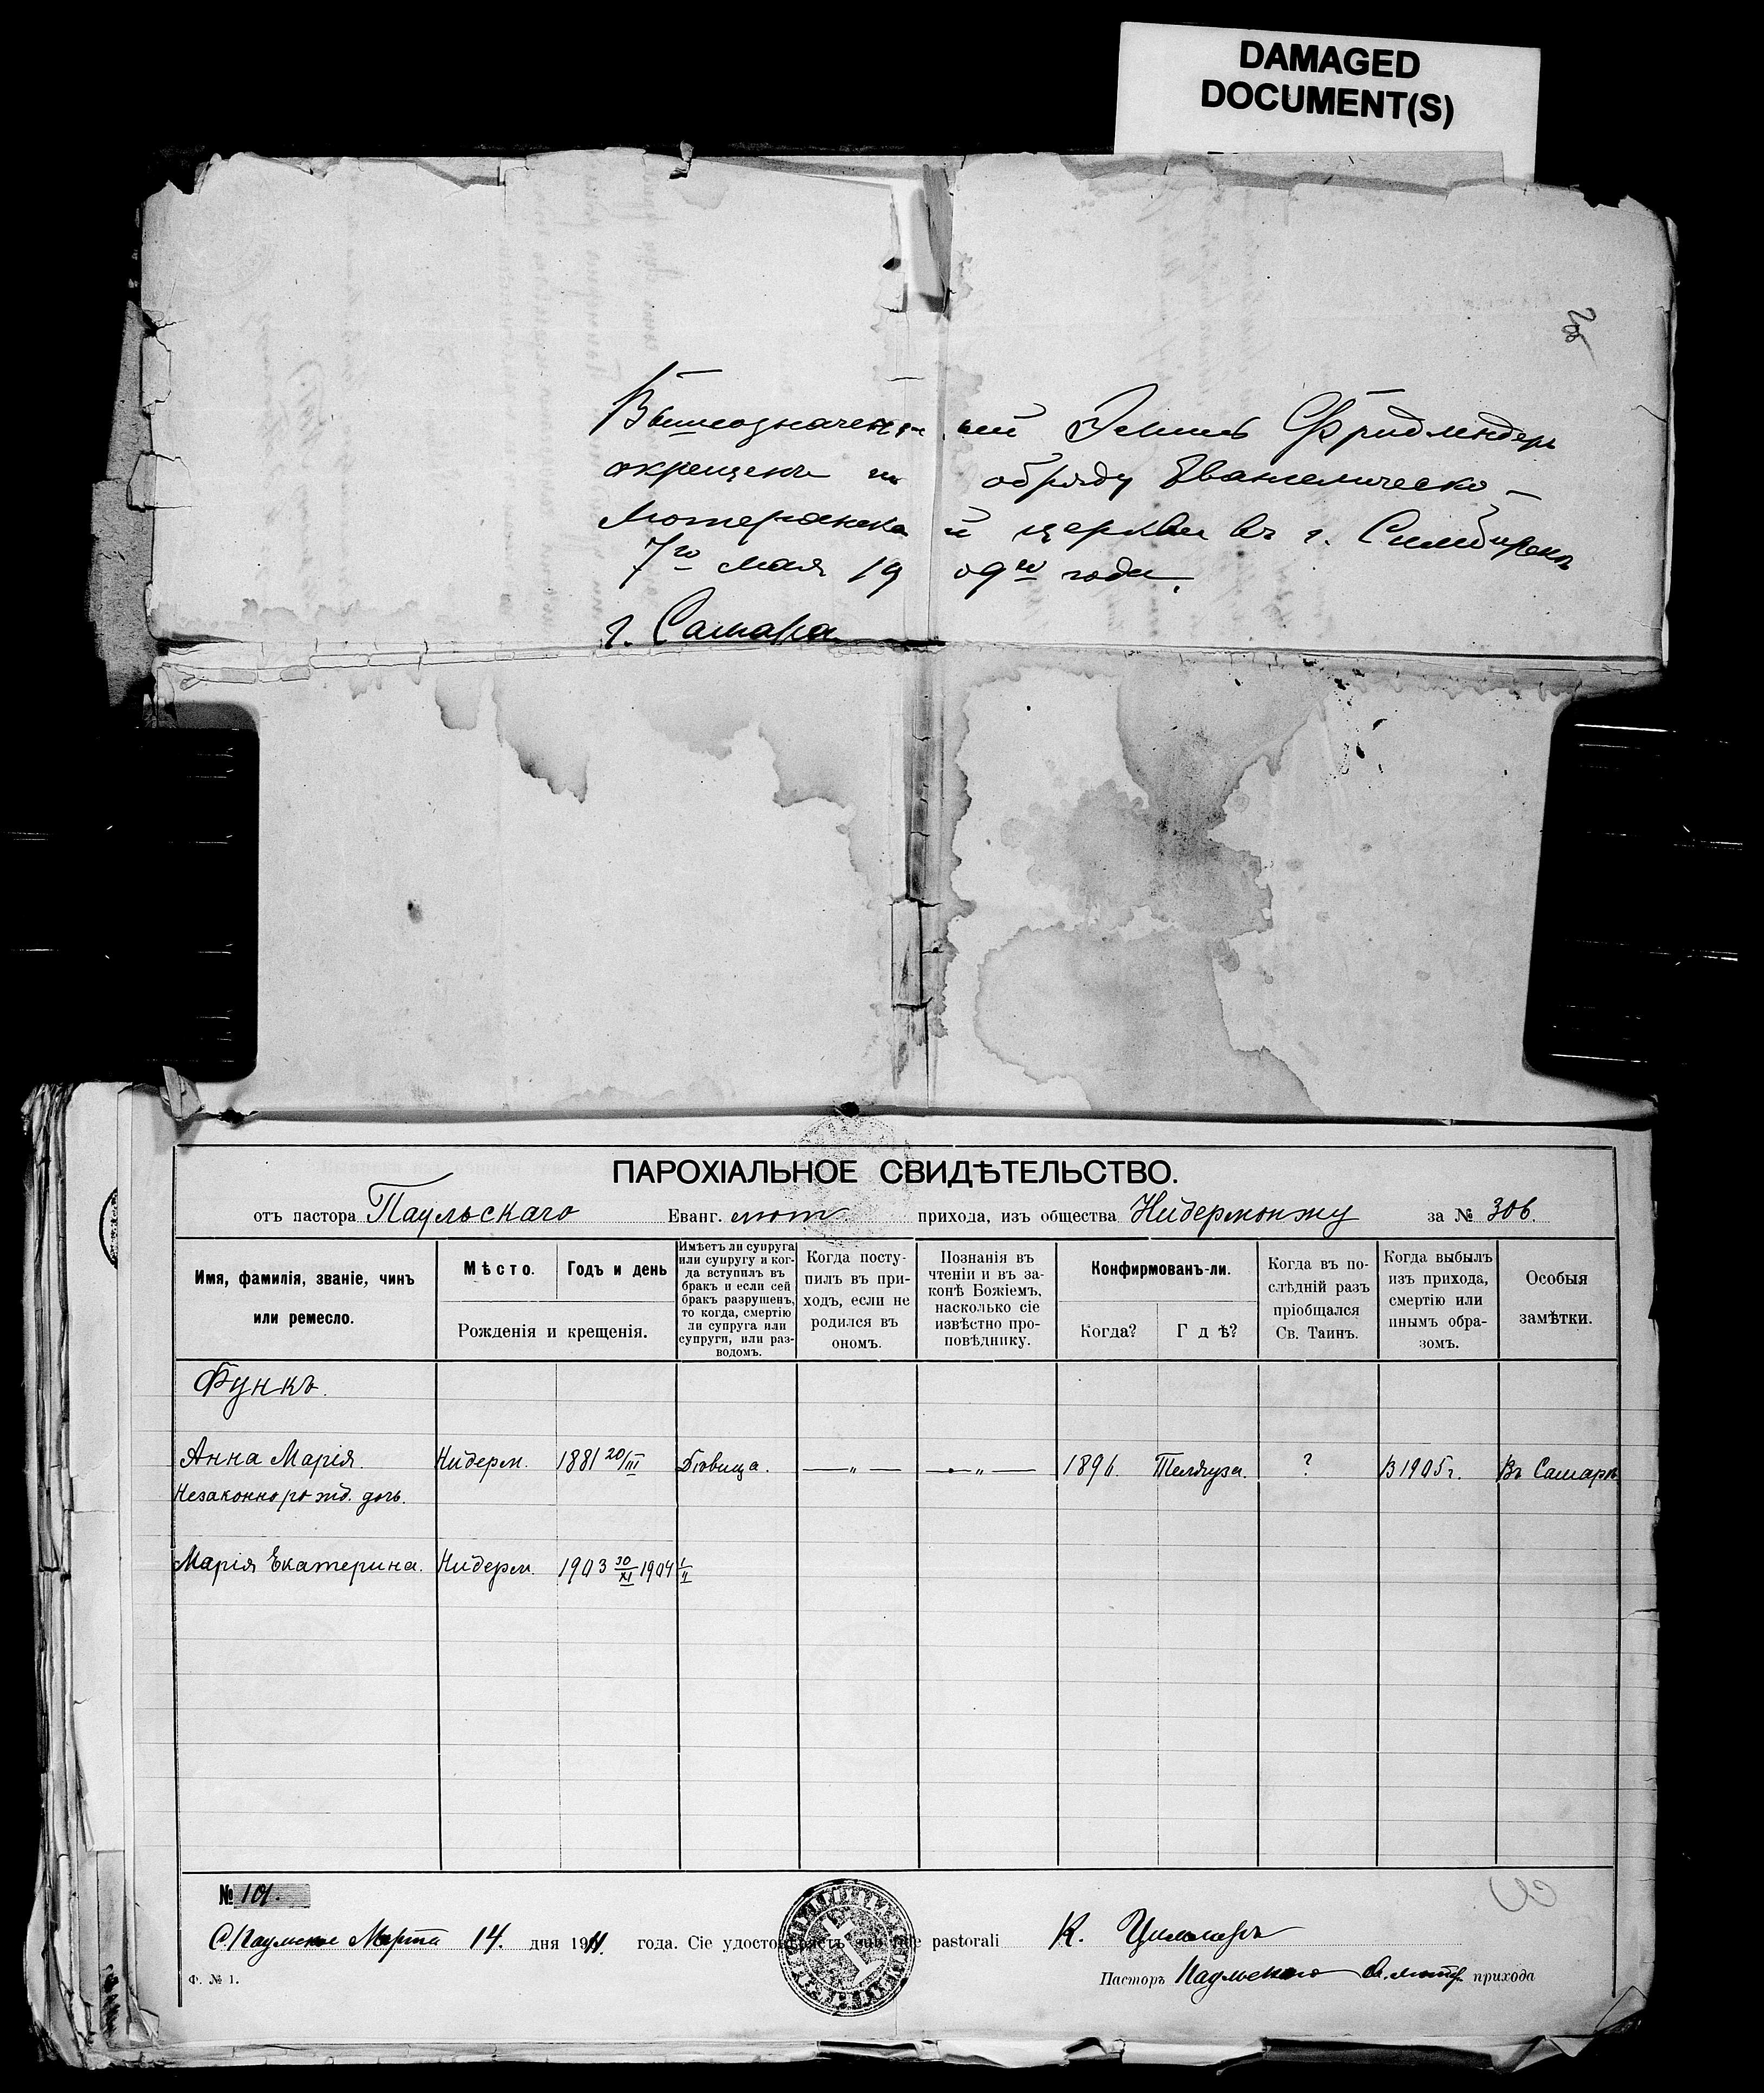 DAMAGED
DOCUMENT(S)
Вышеозначенный Эмиль Фридлендеръ
окрещенъ по обряду Евангелическо-
Лютеранской церкви въ г. Симбирскѣ
7го мая 1909го года.
г. Самара
ПАРОХІАЛЬНОЕ СВИДѢТЕЛЬСТВО.
отъ пастора Паульскаго Еванг. лют. прихода, изъ общества Нидермонжу за № 306.
Имя, фамилія, званіе, чинъ или ремесло.
Мѣсто. Годъ и день
Рожденія и крещенія.
Имѣетъ ли супруга или супругу и когда вступилъ въ бракъ и если сей бракъ разрушенъ, то когда, смертію ли супруга или супруги, или разводомъ.
Когда поступилъ въ приходъ, если не родился въ ономъ.
Познанія въ чтеніи и въ законѣ Божіемъ, насколько сіе извѣстно проповѣднику.
Конфирмованъ-ли.
Когда? Гдѣ?
Когда въ послѣдній разъ пріобщался Св. Таинъ.
Когда выбылъ изъ прихода, смертію или инымъ образомъ.
Особыя замѣтки.
Функъ.
Анна Марія. Нидерм. 1881 20/III Дѣвица. —„— —„— 1896. ? В 1905 г. Въ Самарѣ
Незаконнорожд. дочь.
Марія Екатерина. Нидерм. 1903 30/XI 1904 1/II
№ 101.
С. Паульское Марта 14. дня 1911. года. Сіе удостовѣряетъ sub fide pastorali К.
Ф. № 1.
Пасторъ Паульскаго Ев. лютр. прихода